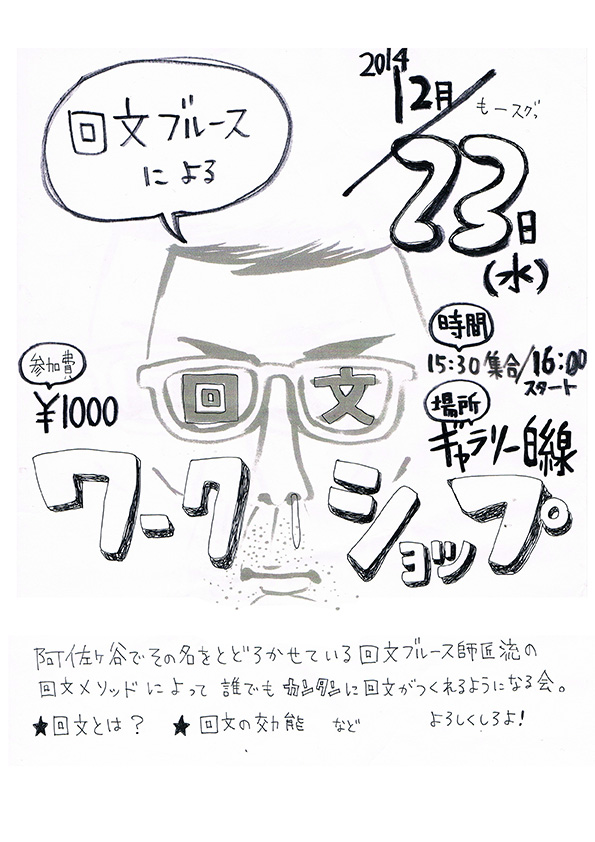 回文ブルース
による
2014
12月
もースグッ
23日
(水)
時間
15:30集合/16:00
スタート
参加費
¥1000
場所
ギャラリー白線
回文
ワークショップ
阿佐ヶ谷でその名をとどろかせている回文ブルース師匠流の
回文メソッドによって誰でもカンタンに回文がつくれるようになる会。
★回文とは? ★回文の効能 など よろしくしろよ!